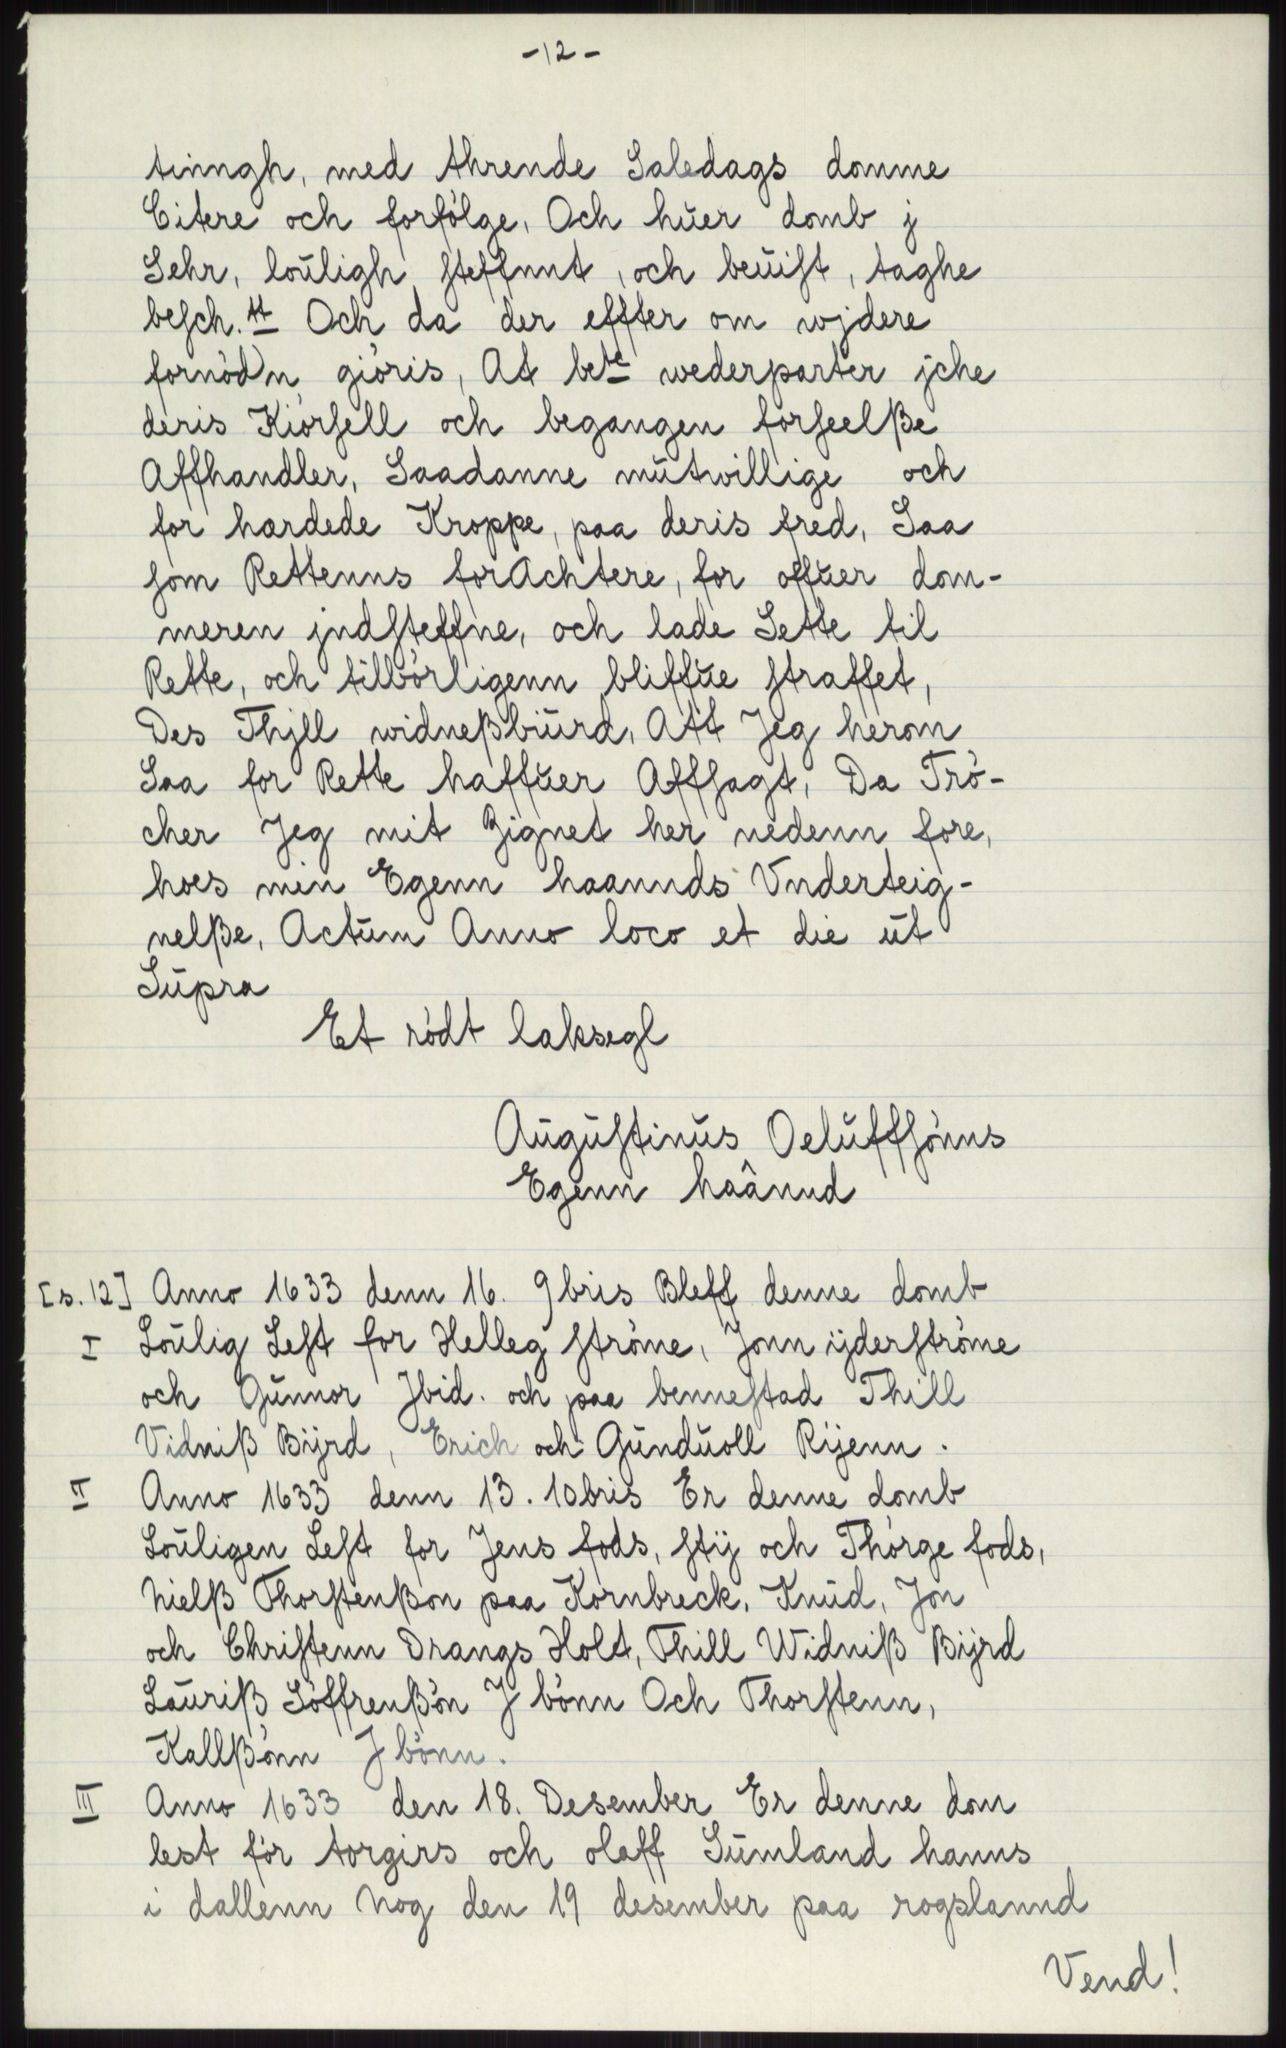 -12-
tinngh, med thrende Saledags domme
Citere och forfölge, Och huer domb j
Sehr, loŭligh steffnnt, och beŭist, taghe
besch.tt Och da der effter om wjdere
fornöd'n giöris, At bete wederparter jche
deris Kiörsell och begangen forseelße
Affhandler, Saadanne mŭtwillige och
for hardede Kroppe, paa deris fred, Saa
som Rettenns forAchtere, for offŭer dom-
meren jndsteffne, och lade Sette til
Rette, och tilbörligenn bliffŭe straffet,
Des Thjll widneßbiŭrd, Att Jeg herom
Saa for Rette haffŭer Affsagt, Da Trö-
cher Jeg mit Zignet her nedenn fore,
hoes min Egenn haannds Vnderteig-
nelße, Actŭm Anno loco et die ŭt
Sŭpra
Et rödt laksegl
Aŭgŭstinŭs Oelŭffsönns
Egenn haânnd
[s. 12] Anno 1633 denn 16. 9bris Bleff denne domb
I Loŭlig Lest for Helleg ströme, Jonn ÿderströme
och Gŭnnor Jbid. och paa bennestad Thill
Vidniß Bijrd, Erich och Gŭndŭoll Rijenn.
II Anno 1633 denn 13. 10bris Er denne domb
Loŭligen Lest for Jens fods, stij och Thörge fods,
Nielß Thorstenßon paa Kornbreck, Knŭd, Jon
och Christenn Drangs Holt, Thill Widniß Bijrd
Laŭriß Söffrenßön J bönn Och Thorstenn,
Kallßönn J bönn.
III Anno 1633 den 18. Desember Er denne dom
lest för torgirs och olaff Sŭmland hanns
i dallenn Nog den 19 desember paa rogslannd
Vend!